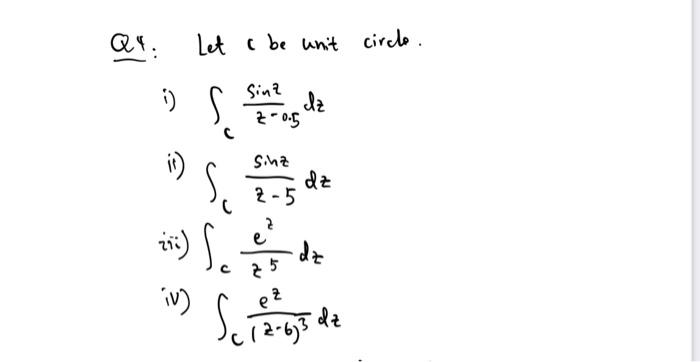 Q4: Let c be unit circle.
i) ∫_c sinz/(z-0.5) dz
ii) ∫_c sinz/(z-5) dz
iii) ∫_c e^z/z^5 dz
iv) ∫_c e^z/(z-6)^3 dz